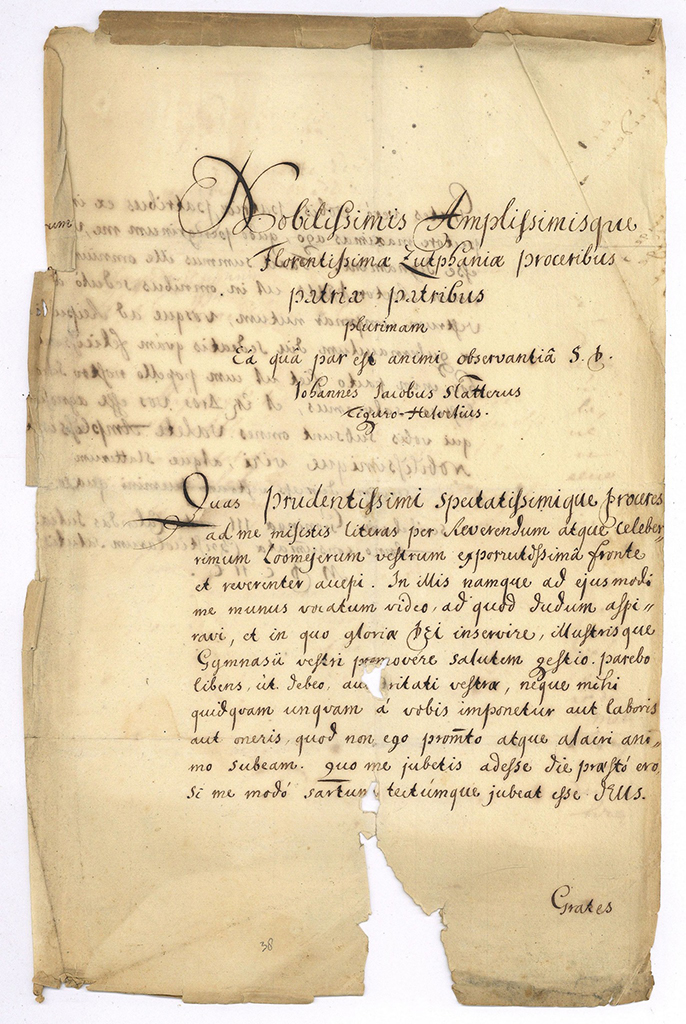 Nobilissimis Amplissimisque
Florentissimæ Zutphaniæ proceribus
patriæ patribus
plurimam
Eâ quâ par est animi observantiâ S. D.
Johannes Jacobus Slatterus
Tiguro-Helvetius.
Quas prudentissimi spectatissimique proceres
ad me misistis literas per Reverendum atque Celeber
rimum Loomejerum vestrum exporrectissimâ fronte
et reverenter accepi. In illis namque ad ejusmodi
me munus vocatum video, ad quod dudum aspi//
ravi, et in quo gloriæ DEI inservire, illustrisque
Gymnasii vestri promovere salutem gestio. parebo
libens, ùt debeo, auc ritati vestræ, neque mihi
quidquam unquam á vobis imponetur aut laboris
aut oneris, quod non ego promto atque alacri ani//
mo subeam. quo me jubetis adesse die præstó ero
si me modó sartum tectúmque jubeat esse DEUS.
Grates
38